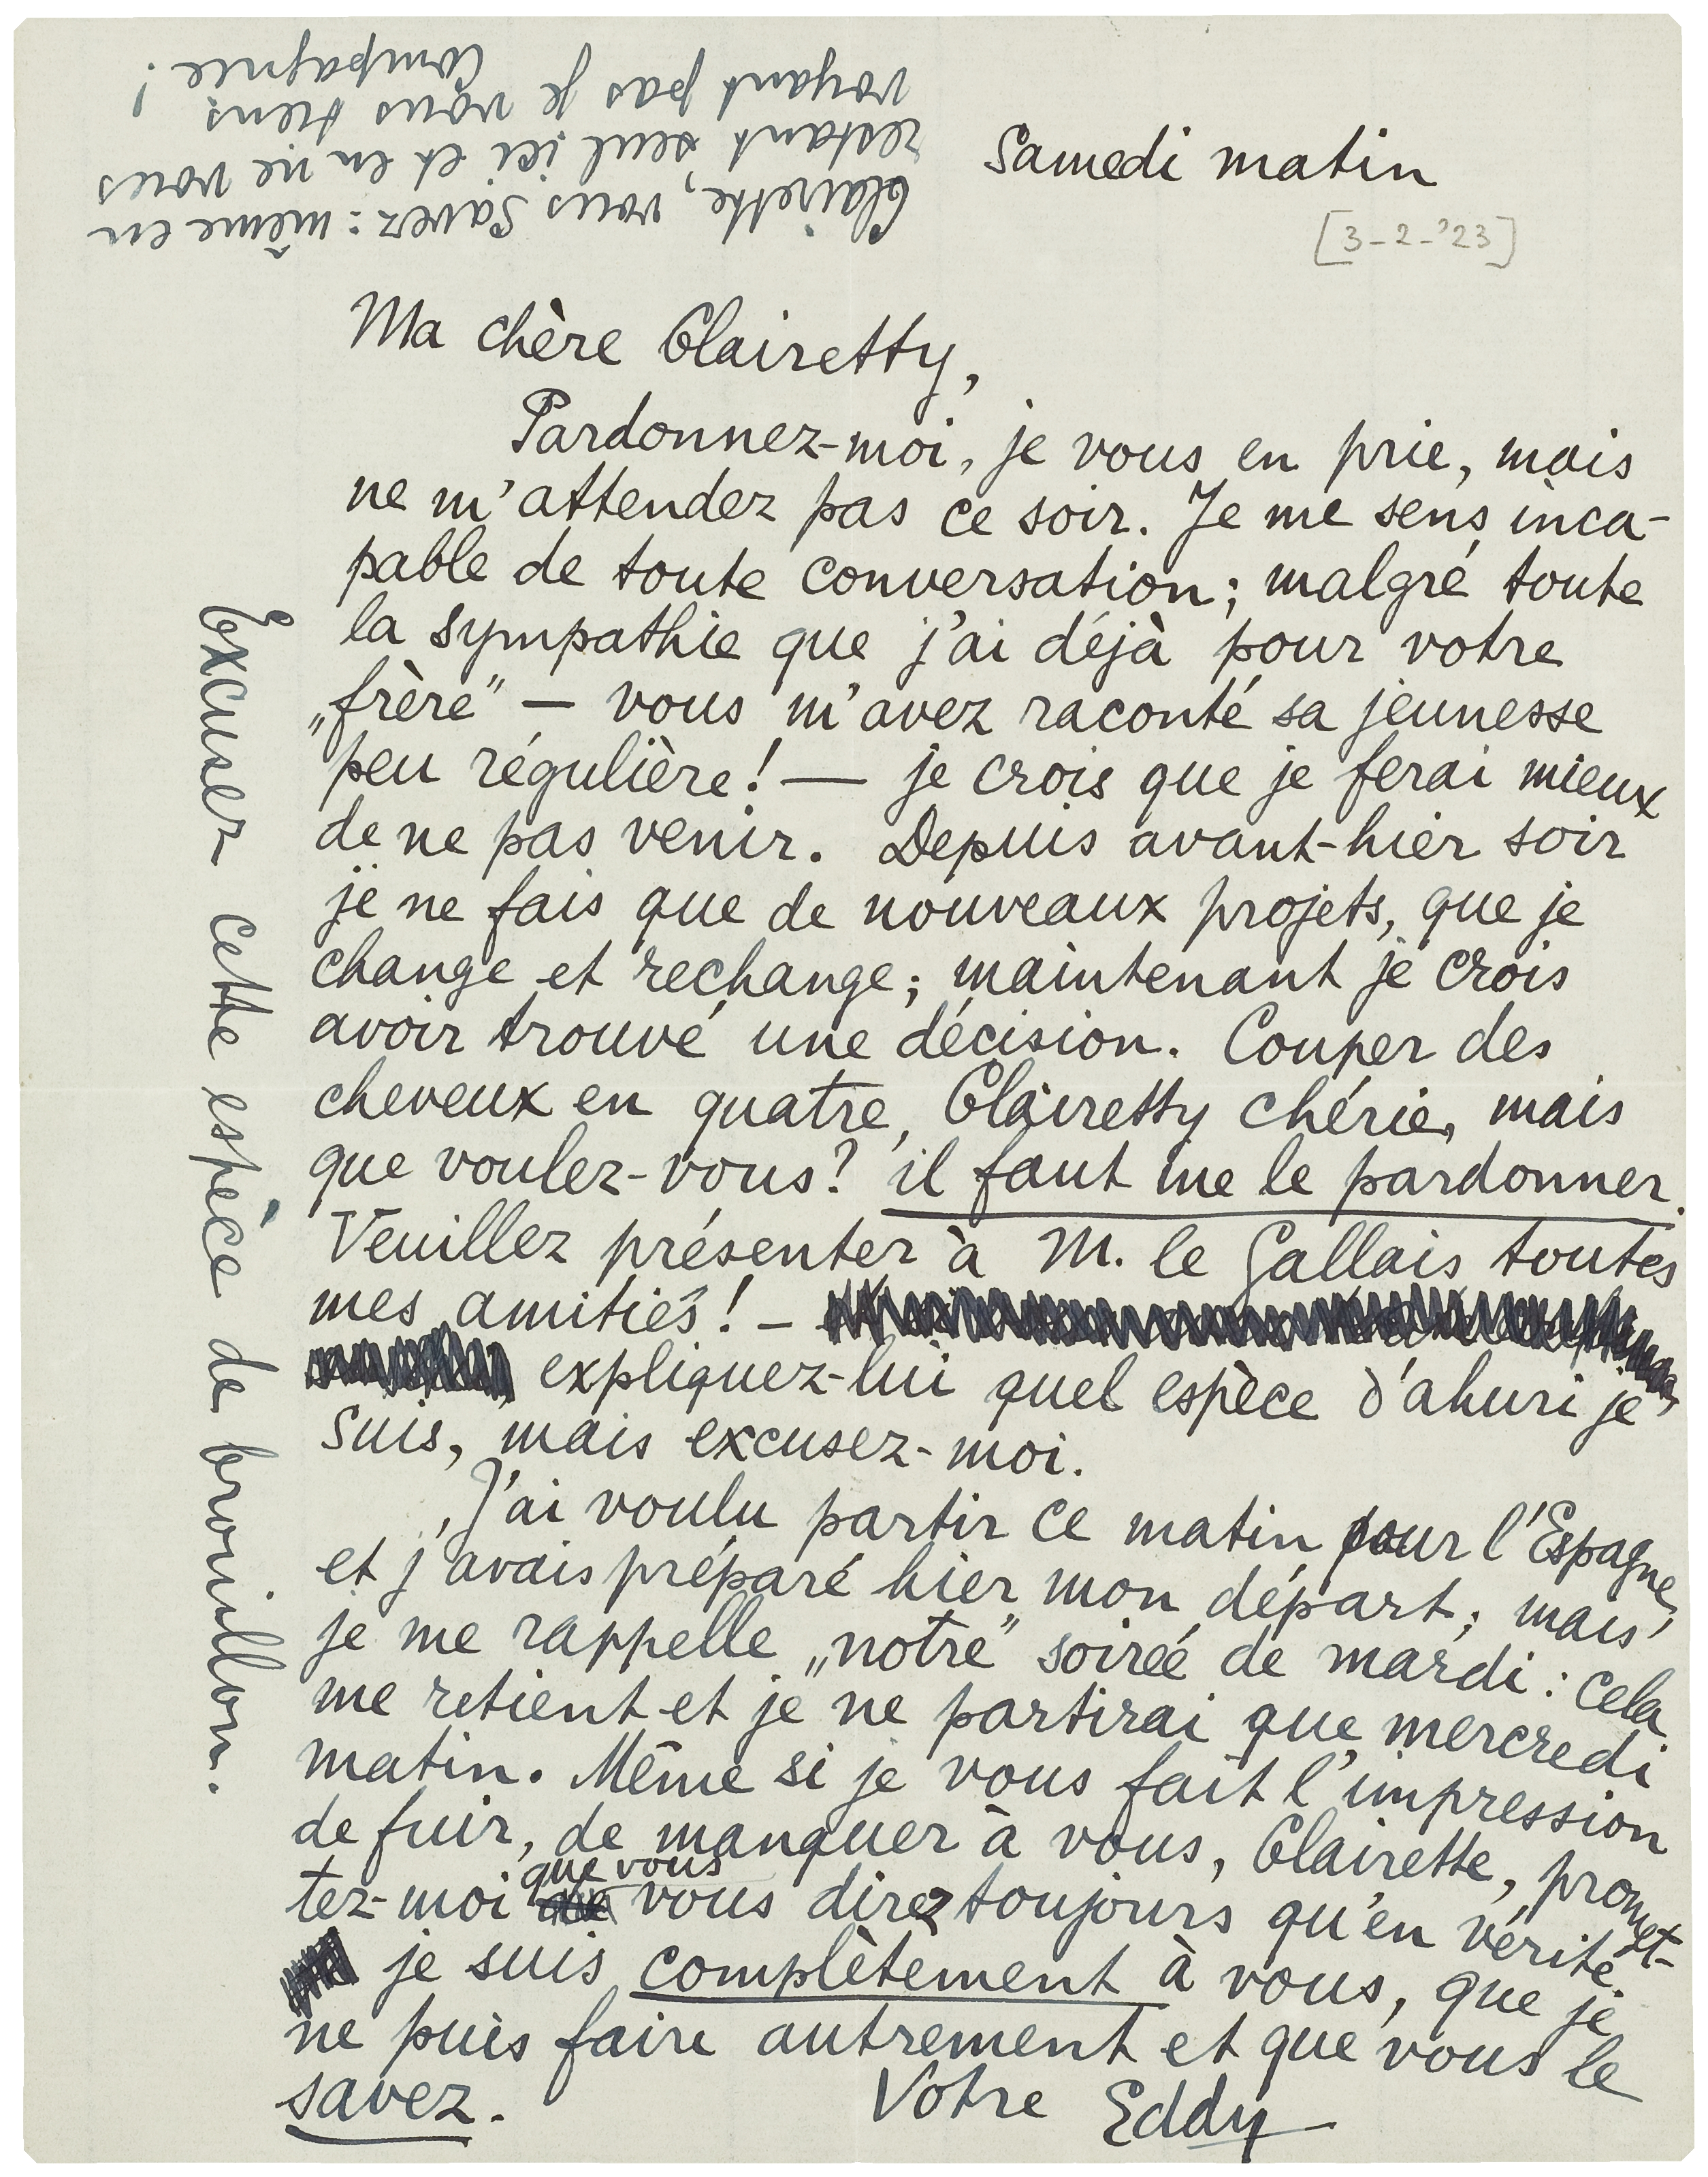 Samedi matin
[3-2-'23]
Ma chère Clairetty,
Pardonnez-moi, je vous en prie, mais
ne m'attendez pas ce soir. Je me sens inca-
pable de toute conversation; malgré toute
la sympathie que j'ai déjà pour votre
„frère” — vous m'avez raconté sa jeunesse
peu régulière! — je crois que je ferai mieux
de ne pas venir. Depuis avant-hier soir
je ne fais que de nouveaux projets, que je
change et rechange; maintenant je crois
avoir trouvé une décision. Couper des
cheveux en quatre, Clairetty chérie, mais
que voulez-vous? il faut me le pardonner.
Veuillez présenter à M. le Gallais toutes
mes amitiés! —
expliquez-lui quel espèce d'ahuri je
suis, mais excusez-moi.
J'ai voulu partir ce matin pour l'Espagne,
et j'avais préparé hier mon départ; mais
je me rappelle „notre” soirée de mardi: cela
me retient et je ne partirai que mercredi
matin. Même si je vous fait l'impression
de fuir, de manquer à vous, Clairette, promet-
tez-moi que vous vous direz toujours qu'en vérité
je suis complètement à vous, que je
ne puis faire autrement et que vous le
savez.
Votre Eddy
Excusez cette espèce de brouillon.
Clairette, vous savez: même en
restant seul ici et en ne vous
voyant pas je vous tiens
compagnie!